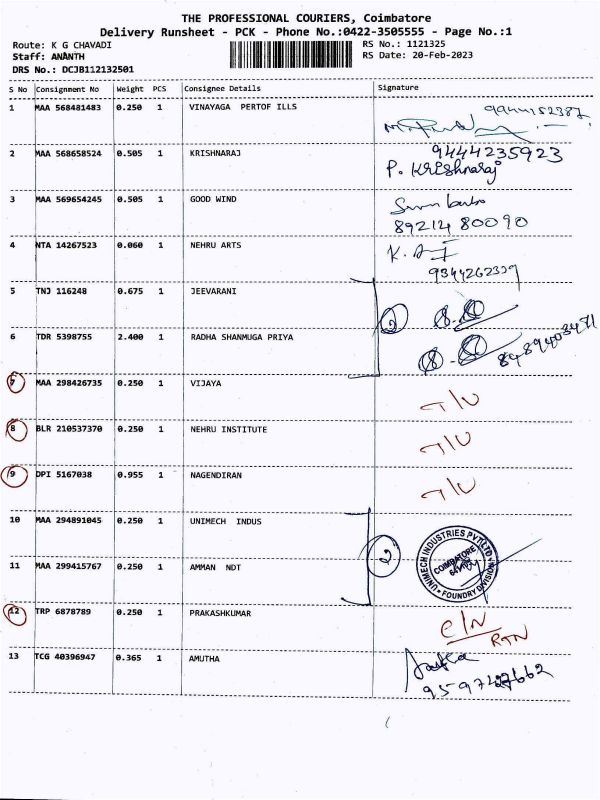 THE PROFESSIONAL COURIERS, Coimbatore
Delivery Runsheet - PCK - Phone No.:0422-3505555 - Page No.:1
Route: K G CHAVADI
RS No.: 1121325
Staff: ANANTH
RS Date: 20-Feb-2023
DRS No.: DCJB112132501
S No Consignment No Weight PCS Consignee Details Signature
1 MAA 568481483 0.250 1 VINAYAGA PERTOF ILLS 9944152387
2 MAA 568658524 0.505 1 KRISHNARAJ 9444235923
P. Krishnaraj
3 MAA 569654245 0.505 1 GOOD WIND
89214 80090
4 NTA 14267523 0.060 1 NEHRU ARTS K.
5 TNJ 116248 0.675 1 JEEVARANI
2
6 TDR 5398755 2.400 1 RADHA SHANMUGA PRIYA
7 MAA 298426735 0.250 1 VIJAYA
8 BLR 210537370 0.250 1 NEHRU INSTITUTE
9 DPI 5167038 0.955 1 NAGENDIRAN
10 MAA 294891045 0.250 1 UNIMECH INDUS
2
UNIMECH INDUSTRIES PVT LTD
COIMBATORE
FOUNDRY DIVISION
11 MAA 299415767 0.250 1 AMMAN NDT
12 TRP 6878789 0.250 1 PRAKASHKUMAR C/N
RTN
13 TCG 40396947 0.365 1 AMUTHA